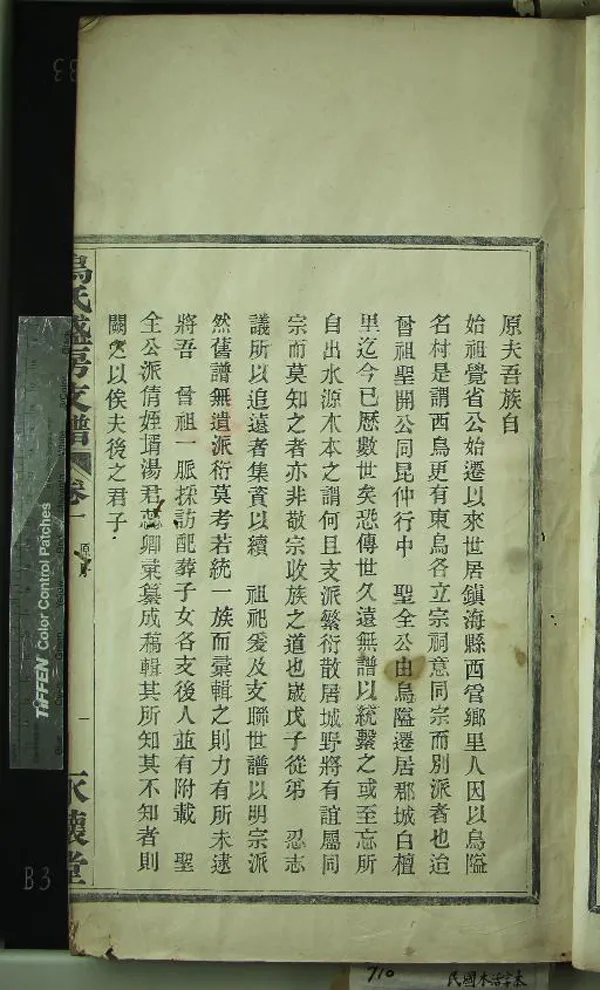 原夫吾族自
始祖覺省公始遷以來世居鎮海縣西管鄉里人因以烏隘
名村是謂西烏更有東烏各立宗祠意同宗而別派者也迨
曾祖聖開公同昆仲行中 聖全公由烏隘遷居郡城白檀
里迄今已歷數世矣恐傳世久遠無譜以統繫之或至忘所
自出水源木本之謂何且支派繁衍散居城野將有誼屬同
宗而莫知之者亦非敬宗收族之道也歲戊子從弟 忍志
議所以追遠者集資以續 祖祀爰及支聯世譜以明宗派
然舊譜無遺派衍莫考若統一族而彙輯之則力有所未逮
將吾 曾祖一脈採訪配葬子女各支後人並有附載 聖
全公派倩姪壻湯君 卿彙纂成稿輯其所知其不知者則
闕之以俟夫後之君子
烏氏盛房支譜 卷一
一
永懷堂
TIFFEN Color Control Patches
B3
710
民國木活字本